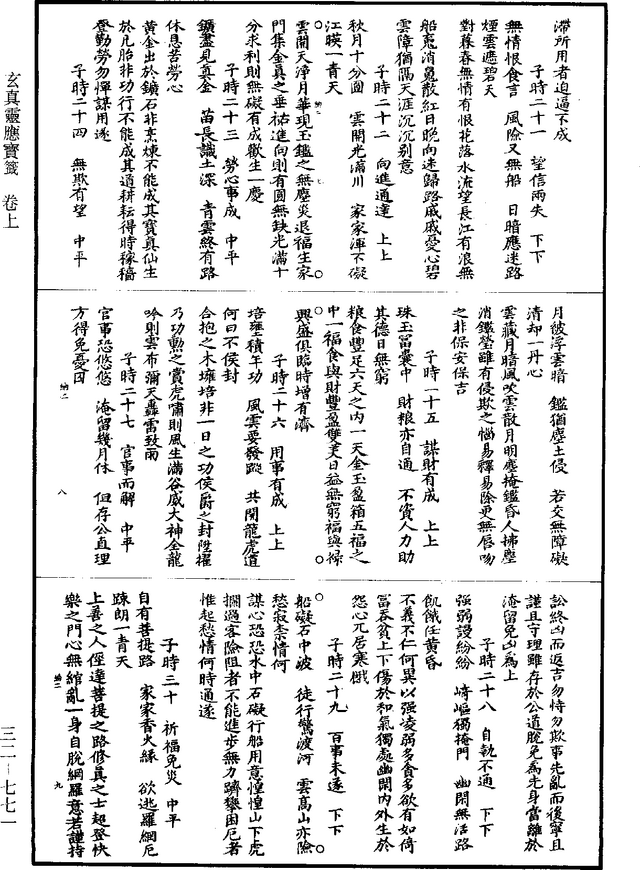 滯所用者迫逼下成
子時二十一　望信兩失　下下
無情恨食言　風險又無船　日暗應迷路
煙雲遮碧天
對暮春無情有恨花落水流望長江有浪無
船蒐消魂散紅日晚向迷歸路戚戚憂心碧
雲障猶隔天涯沉沉別意
子時二十二　向進通達　上上
秋月十分圓　雲開光滿川　家家渾不礙
江暎一青天
雲開天淨月華現玉鑑之無塵災退福生家
門集金真之垂祐進向則有圓無缺光滿十
分求利則無礙有成歡生一慶
子時二十三　勞心事成　中平
鑛盡見真金　苗長識土深　青雲終有路
休息苦勞心
黃金出於鑛石非烹煉不能成其寶真仙生
於凡胎非功行不能成其道耕耘得時稼穡
登勤勞勿憚謀用遂
子時二十四　無欺有望　中平
玄真靈應寶籤　卷上
月被浮雲暗　鑑猶塵土侵　若交無障礙
清却一丹心
雲藏月暗風吹雲散月明塵掩鑑昏人拂塵
消鑑瑩雖有侵欺之惱易釋易除更無唇吻
之非保安保吉
子時一十五　謀財有成　上上
珠玉富囊中　財粮亦自通　不資人力助
其德日無窮
粮食豐足六天之內一天金玉盈箱五福之
中一福食與財豐盈雙美日益無窮福與祿
興盛俱臨時增有濟
子時二十六　用事有成　上上
培壅積年功　風雲要發蹤　共閱龍虎道
何曰不侯封
合抱之木壅培非一日之功侯爵之封陞擢
乃功勲之賞虎嘯則風生滿谷威大神全龍
吟則雲布彌天轟雷致雨
子時二十七　官事而解　中平
官事恐悠悠　淹留幾月休　但存公直理
方得免憂囚
訟終凶而返吉勿恃勿欺事先亂而後寧且
謹且守理雖存於公道脫免為先身當離於
淹留免凶為上
子時二十八　自執不通　下下
強弱謾紛紛　崎嶇獨掩門　幽閑無活路
飢餓任黃昏
不義不仁何異以強凌弱多貪多欲有如倚
富吞貧上下傷於和氣獨處幽閑內外生於
怨心兀居寒餓
子時二十九　百事未遂　下下
船礙石中波　徒行驚渡河　雲高山亦險
愁寂柰情何
謀心恐恐水中石礙行船用意惶惶山下虎
攔過客險阻者不能進步無力躋攀困厄者
惟起愁情何時通遂
子時三十　祈福免災　中平
自有菩提路　家家香火緣　欲逃羅網厄
踈朗一青天
上善之人侄達菩提之路修真之士超登快
樂之門心無綰亂一身自脫網羅意若謹持
三二－七七一